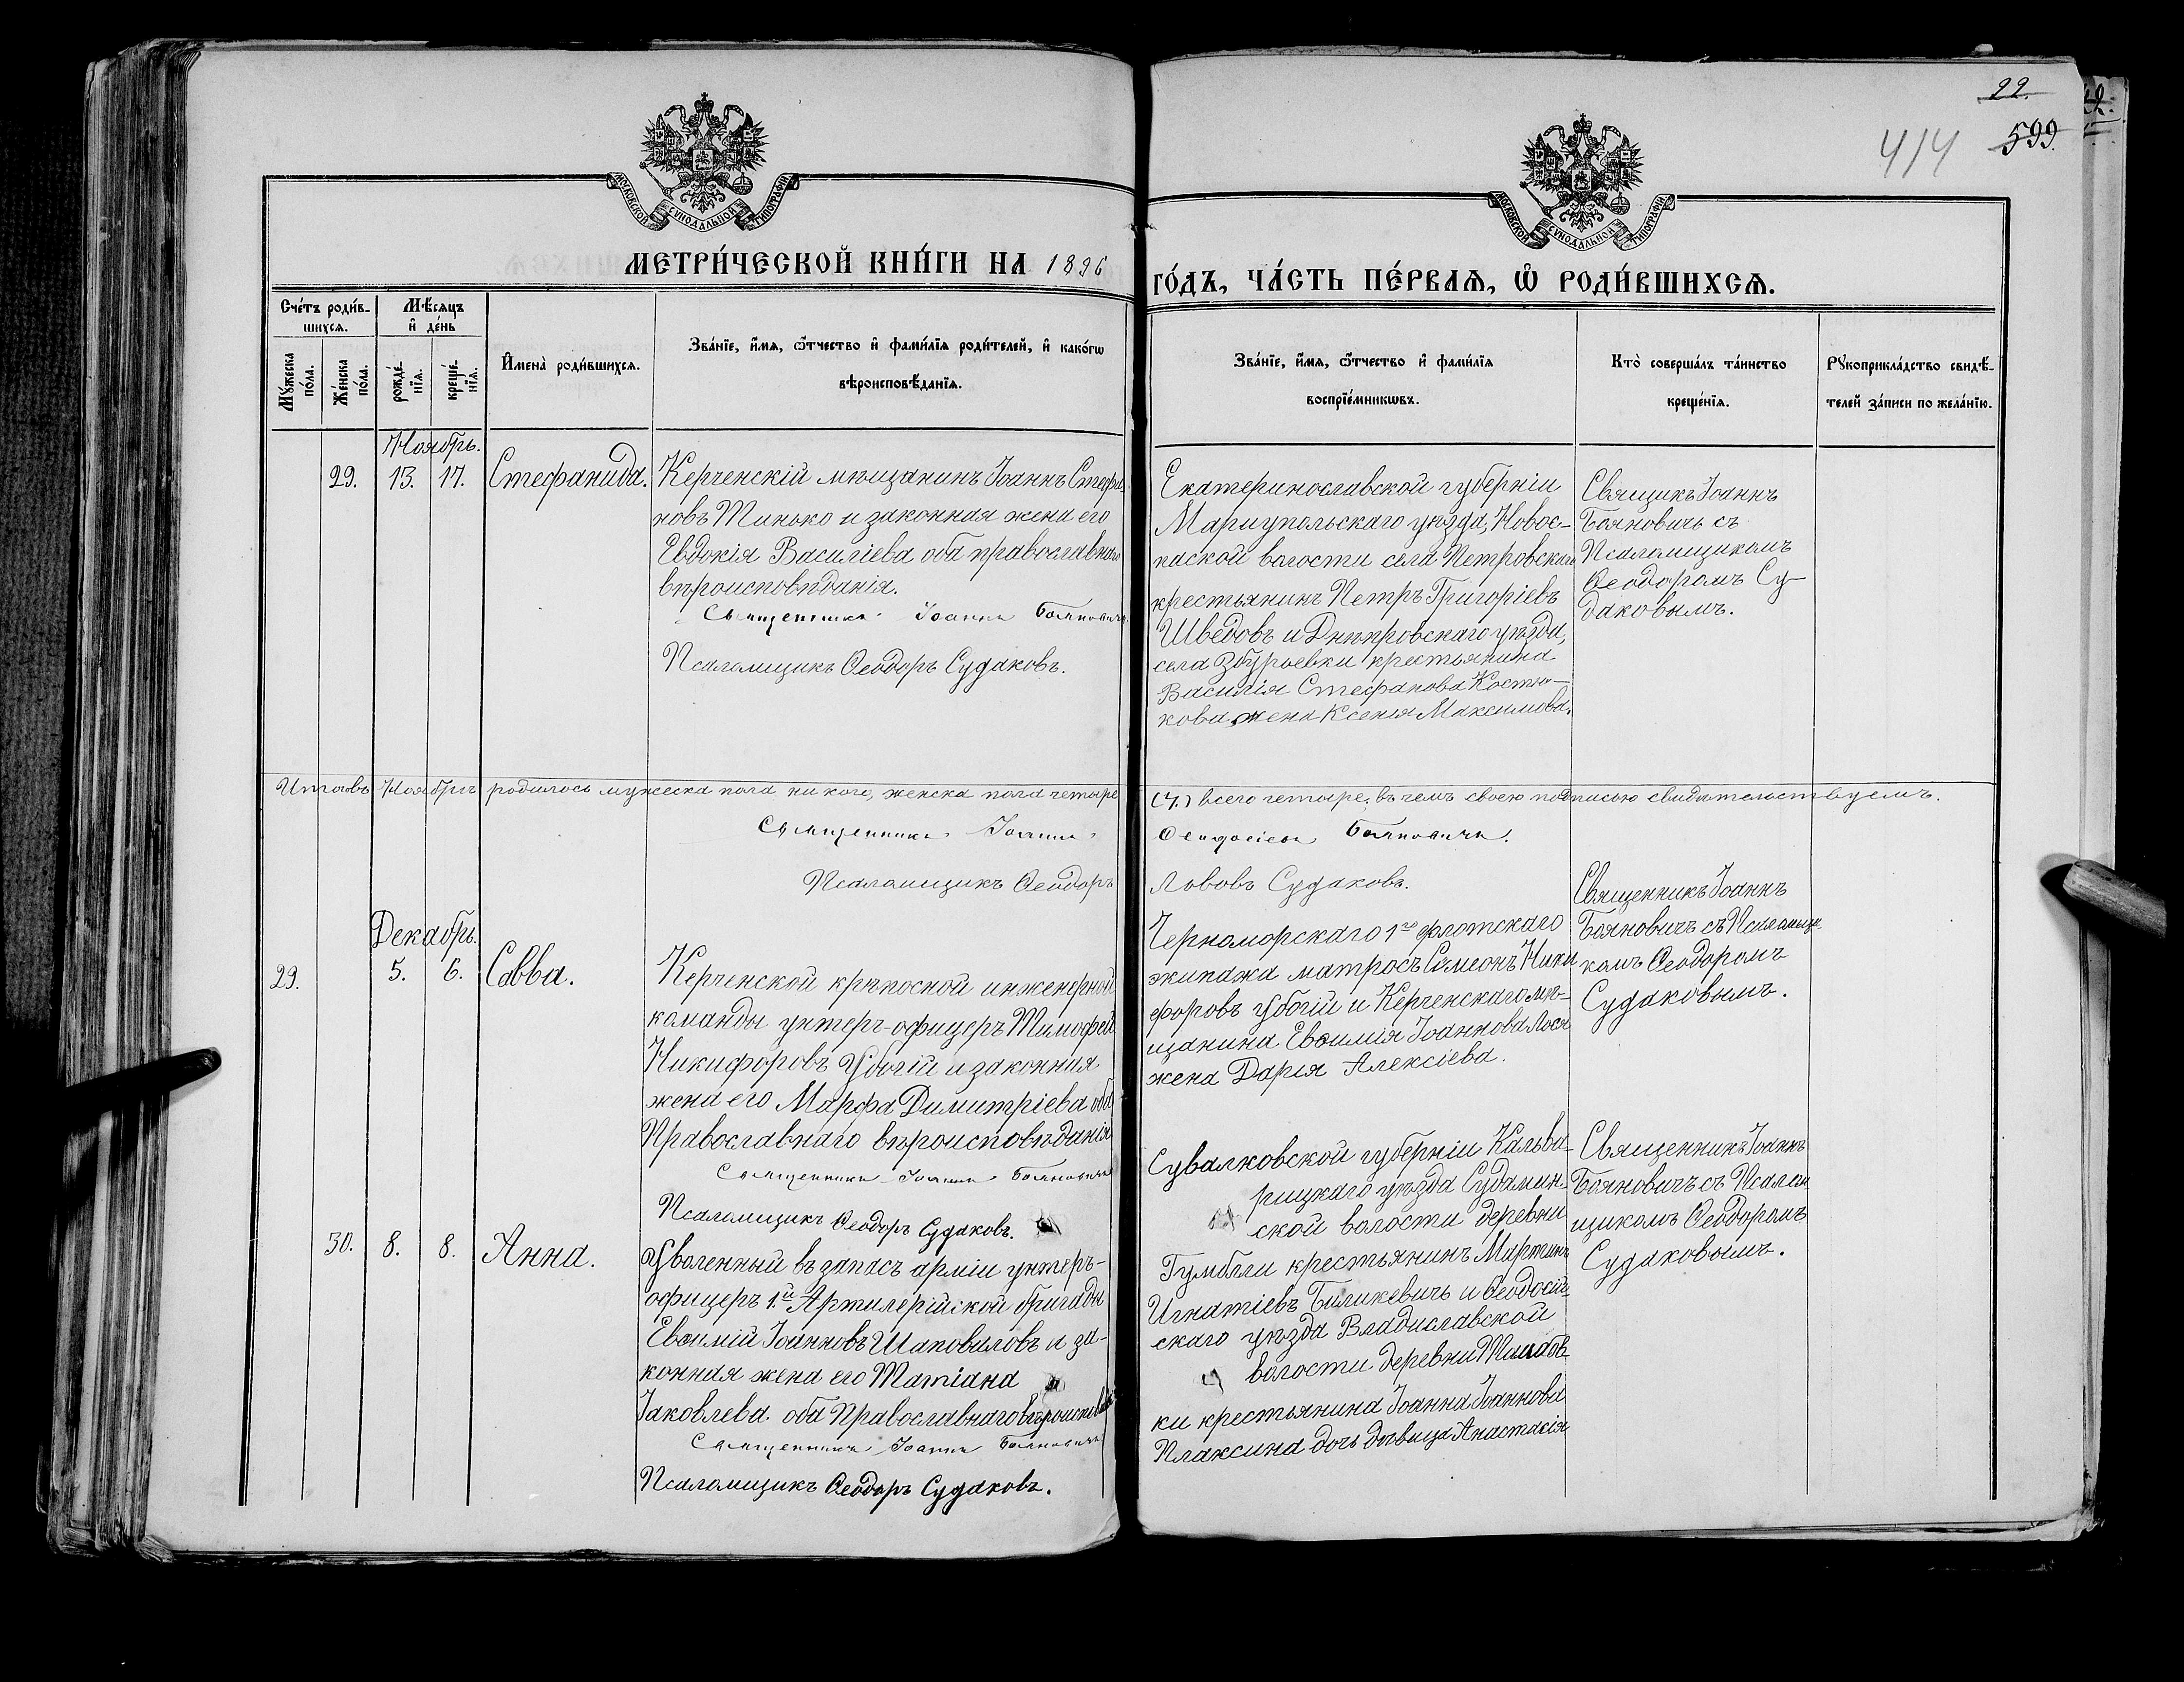 22.
414 599.
МОСКОВСКОЙ СУНОДАЛЬНОЙ ТИПОГРАФІИ
МОСКОВСКОЙ СУНОДАЛЬНОЙ ТИПОГРАФІИ
МЕТРИ́ЧЕСКОЙ КНИ́ГИ НА 1896
ГО́ДЪ, ЧА́СТЬ ПЕ́РВАѦ, Ѡ РОДИ́ВШИХСѦ.
Сче́тъ роди́в-
шихсѧ.
Мꙋжеска по́ла.
Же́нска по́ла.
Мѣ́сѧцъ
и҆ де́нь
рожде́-
нїѧ.
креще́-
нїѧ.
И҆мена̀ роди́вшихсѧ.
Зва́нїе, и҆́мѧ, ѻ҆́тчество и҆ фами́лїѧ роди́телей, и҆ како́гѡ
вѣроисповѣ́данїѧ.
Зва́нїе, и҆́мѧ, ѻ҆́тчество и҆ фами́лїѧ
воспрїе́мникѡвъ.
Кто̀ соверша́лъ та́инство
креще́нїѧ.
Рꙋкоприкла́дство свидѣ́-
телей за́писи по жела́нїю.
Ноябрь.
29. 13. 17. Стефанида.
Керченскій мѣщанинъ Іоаннъ Стефа-
новъ Тинько и законная жена его
Евдокія Василіева оба православнаго
вѣроисповѣданія.
Священникъ Іоаннъ Бояновичъ
Псаломщикъ Ѳеодоръ Судаковъ.
Екатеринославской губерніи
Мариупольскаго уѣзда, Новос-
паской волости села Петровскаго
крестьянинъ Петръ Григоріевъ
Шведовъ и Днѣпровскаго уѣзда,
села Збурьевки крестьянина
Василія Стефанова Костю-
кова жена Ксенія Максимова.
Священикъ Іоаннъ
Бояновичь съ
Псаломщикомъ
Ѳеодоромъ Су-
даковымъ.
Итого въ Ноябрѣ родилось мужеска пола никого, женска пола четыре
(4.) всего четыре, въ чемъ своею подписью свидѣтельствуемъ.
Священникъ Іоаннъ
Ѳеодосіевъ Бояновичъ.
Псаломщикъ Ѳеодоръ
Львовъ Судаковъ.
Декабрь.
29. 5. 6. Савва.
Керченской крѣпосной инженерной
команды унтеръ-офицеръ Тимофей
Никифоровъ Убогій и законная
жена его Марфа Димитріева оба
Православнаго вѣроисповѣданія
Священникъ Іоаннъ Бояновичъ
Псаломщикъ Ѳеодоръ Судаковъ.
Черноморскаго 1го флотскаго
экипажа матросъ Симеонъ Ники
форовъ Убогій и Керченскаго мѣ-
щанина Евѳимія Іоаннова
жена Дарія Алексіева.
Священникъ Іоаннъ
Бояновичъ съ Псаломщи
комъ Ѳеодоромъ
Судаковымъ.
30. 8. 8. Анна.
Уволенный въ запасъ арміи унтеръ-
офицеръ 1.й Артилерійской бригады
Евѳимій Іоанновъ Шаповаловъ и за-
конная жена его Татіана
Іаковлева. оба Православнаго вѣроисповѣд
Священникъ Іоаннъ Бояновичъ
Псаломщикъ Ѳеодоръ Судаковъ.
Сувалковской губерніи Кальва-
рицкаго уѣзда
ской волости деревни
крестьянинъ Мартинъ
Игнатіевъ Биликевичь и Ѳеодосій-
скаго уѣзда Владиславской
волости деревни
ки крестьянина Іоанна Іоаннова
Плаксина дочь дѣвица Анастасія
Священникъ Іоаннъ
Бояновичъ съ Псалом
щикомъ Ѳеодоромъ
Судаковымъ.